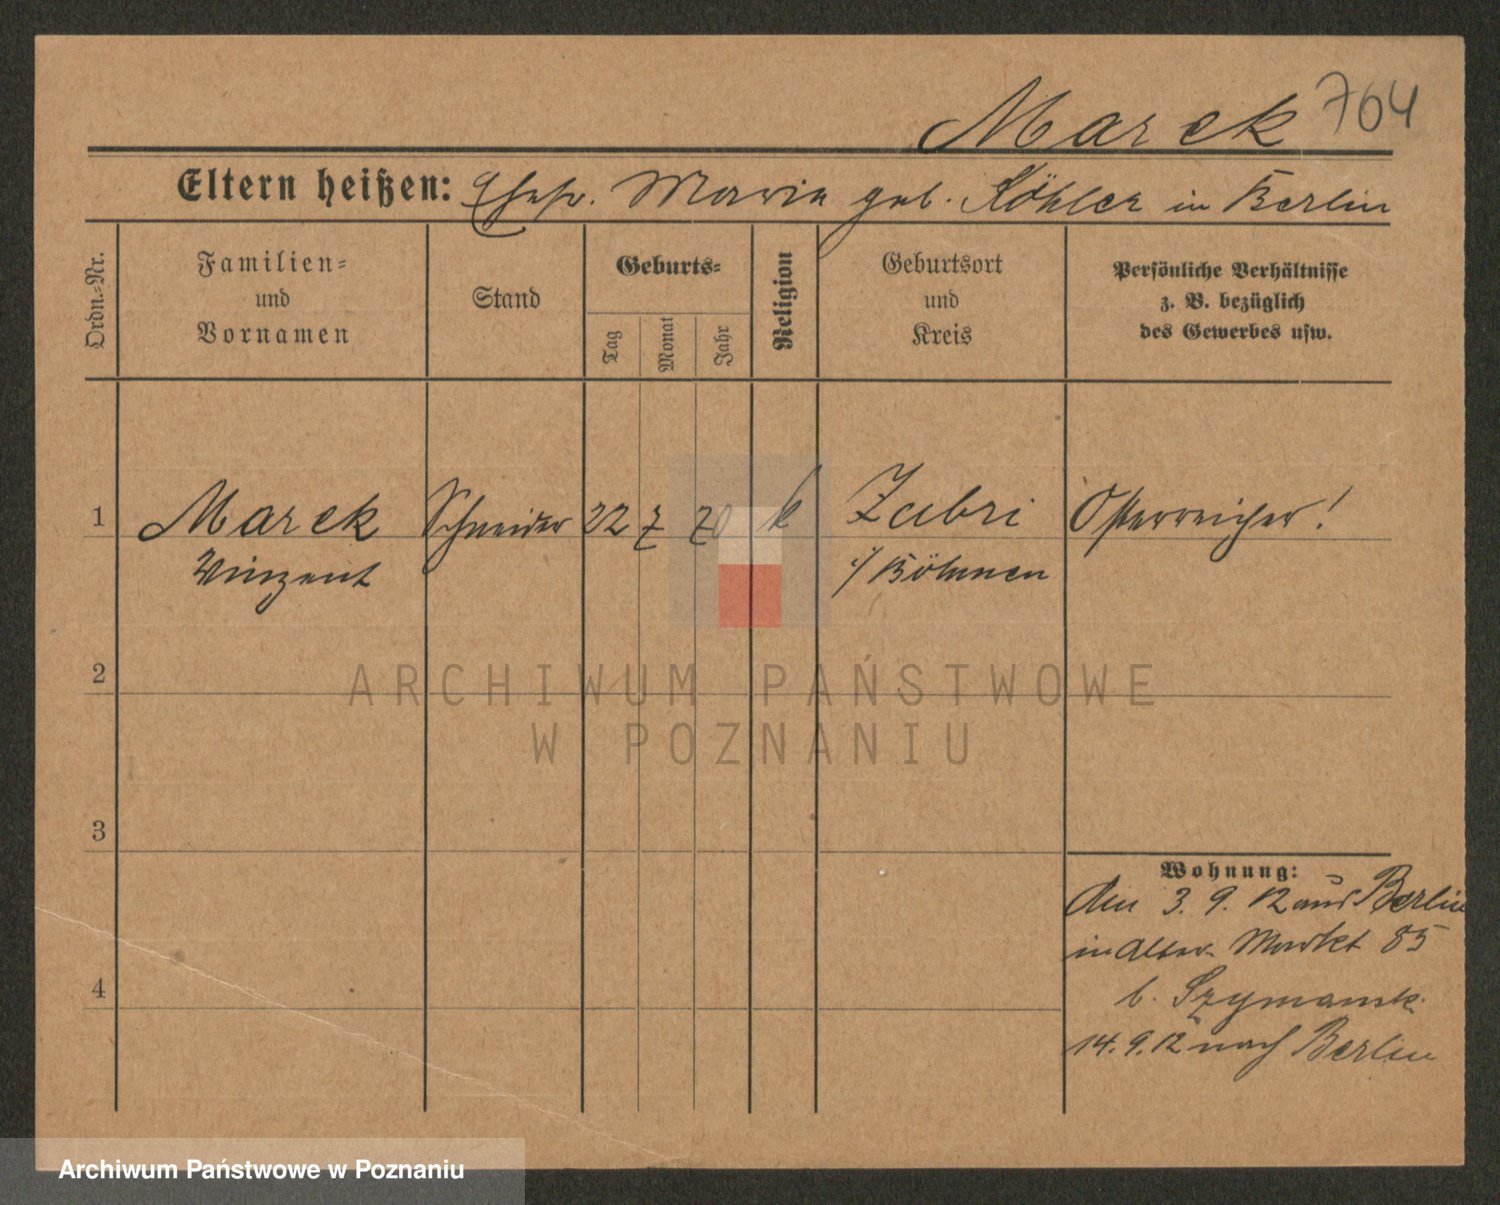 Marek 764
Eltern heißen: Ehefr. Marie geb. Köhler in Berlin
Ordn.-Nr.
Familien-
und
Vornamen
Stand
Geburts-
Tag
Monat
Jahr
Religion
Geburtsort
und
Kreis
Persönliche Verhältnisse
z. B. bezüglich
des Gewerbes usw.
1 Marek Schneider 22 7 70 k Zubri Österreicher!
Vinzent i/ Böhmen
2
ARCHIWUM PAŃSTWOWE
W POZNANIU
3
Wohnung:
den 3. 9. 12 aus Berlin
in Alter Markt 85
4
b. Szymansk.
14. 9. 12 nach Berlin
Archiwum Państwowe w Poznaniu